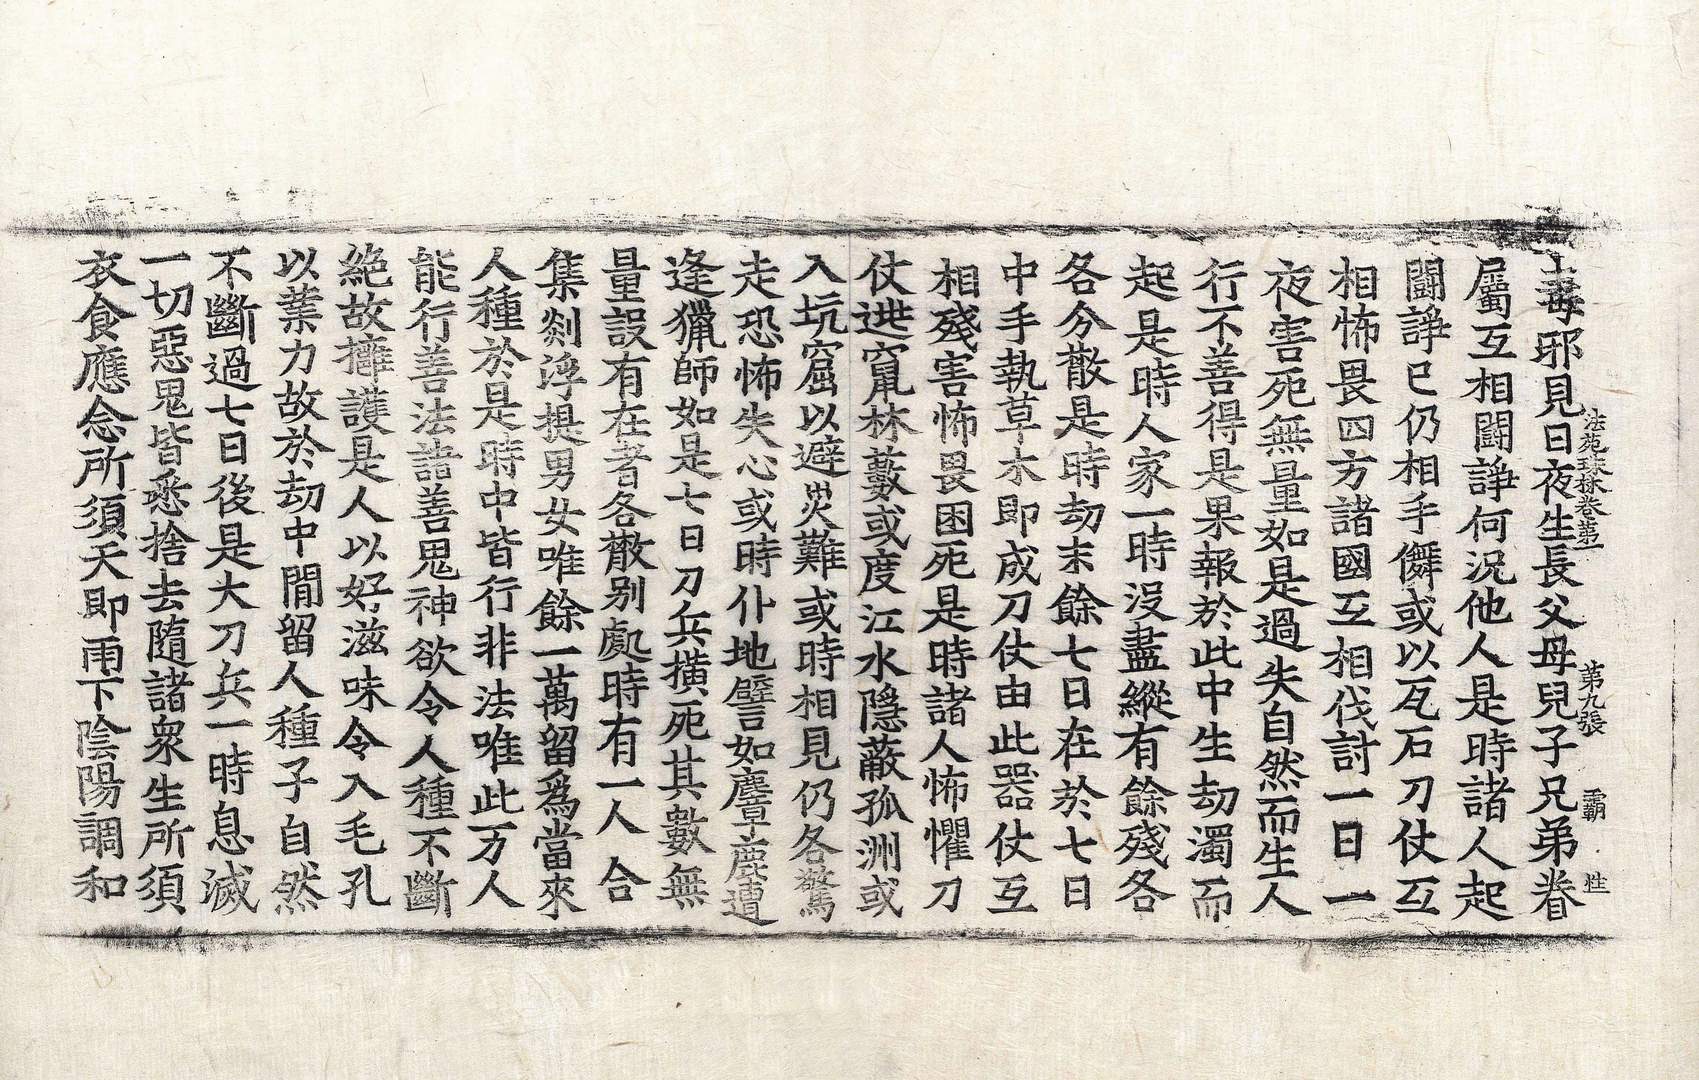 法苑珠林卷第一　第九張　霸　姓
毒邪見日夜生長父母兒子兄弟眷
屬互相鬪諍何況他人是時諸人起
鬪諍已仍相手僻或以瓦石刀仗互
相怖畏四方諸國互相伐討一日一
夜害死無量如是過失自然而生人
行不善得是果報於此中生劫濁而
起是時人家一時没盡縱有餘殘各
各分散是時劫末餘七日在於七日
中手執草木即成刀仗由此器仗互
相殘害怖畏困死是時諸人怖懼刀
仗逃竄林藪或度江水隱蔽孤洲或
入坑窟以避災難或時相見仍各驚
走恐怖失心或時仆地譬如麞鹿遭
逢獵師如是七日刀兵橫死其數無
量設有在者各散別處時有一人合
集剡浮提男女唯餘一萬留爲當來
人種於是時中皆行非法唯此万人
能行善法諸善鬼神欲令人種不斷
絶故擁護是人以好滋味令入毛孔
以業力故於劫中閒留人種子自然
不斷過七日後是大刀兵一時息滅
一切惡鬼皆悉捨去隨諸衆生所須
衣食應念所須天即雨下陰陽調和